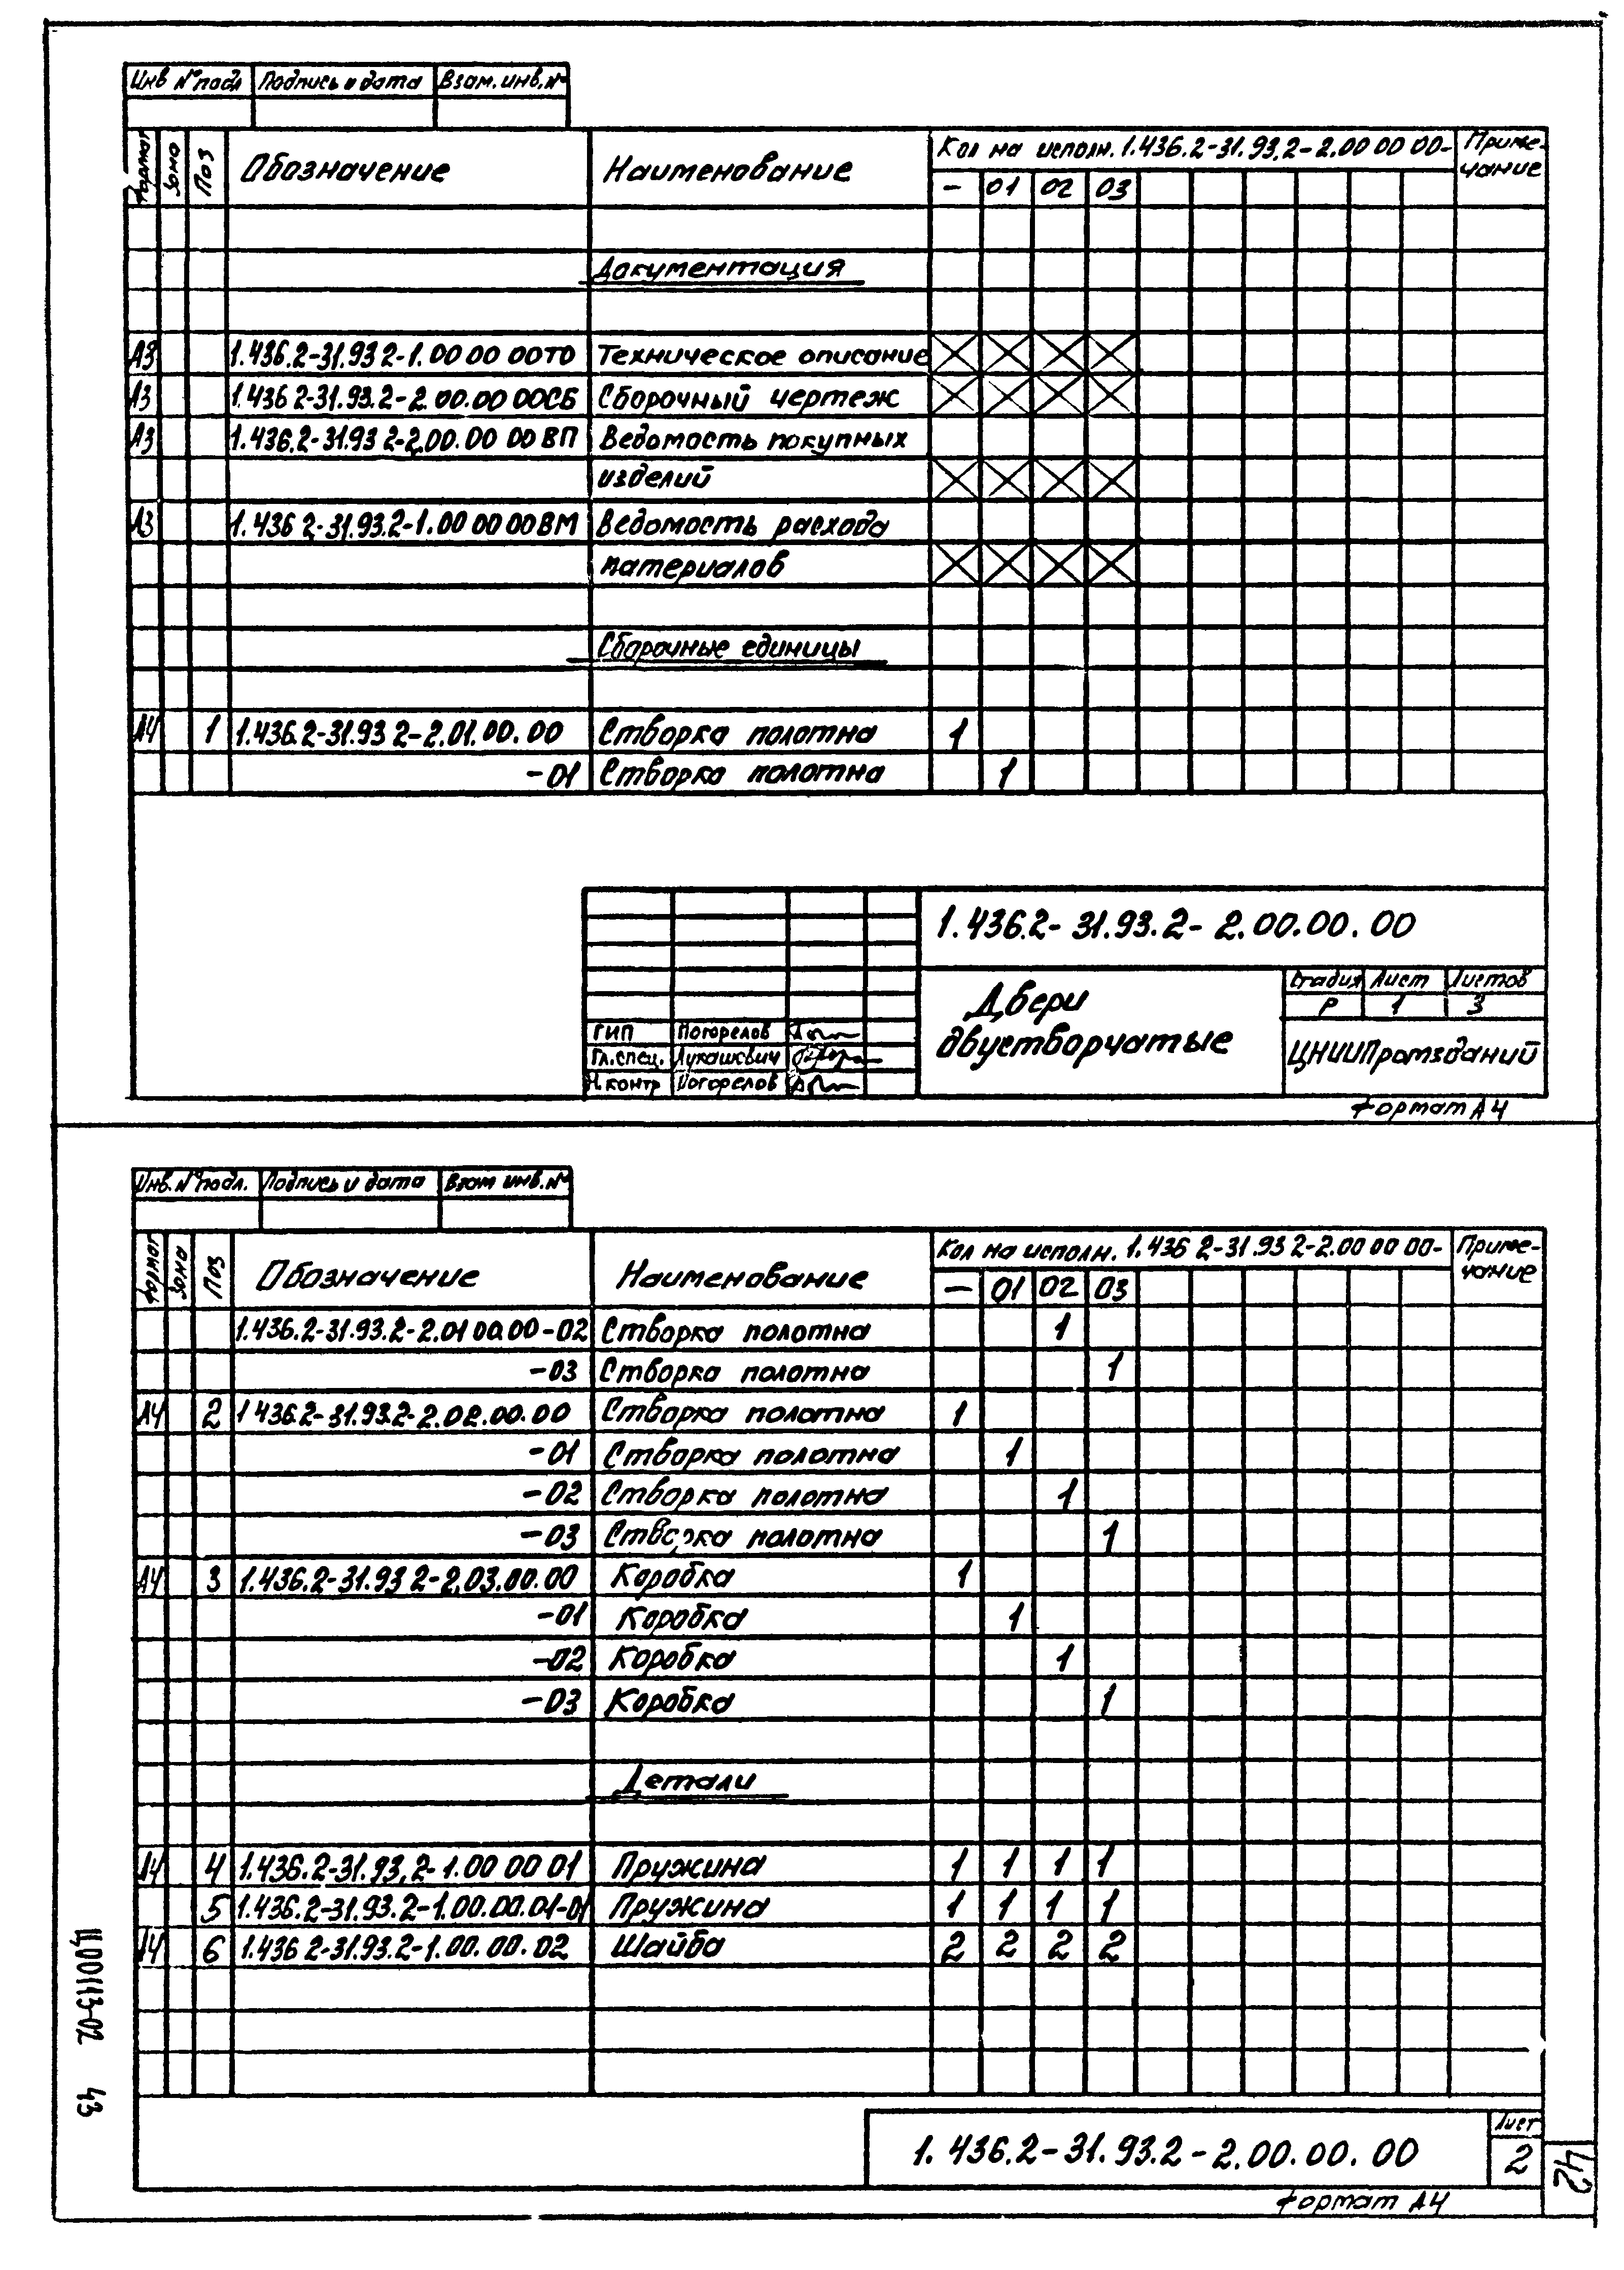 Инв № подл Подпись и дата Взам. инв. №
Формат Зона Поз Обозначение Наименование Кол на исполн. 1.436.2-31.93.2-2.00 00 00- Приме-
чание
– 01 02 03
Документация
А3 1.436.2-31.93 2-1.00 00 00ТО Техническое описание
А3 1.436 2-31.93.2-2.00.00 00СБ Сборочный чертеж
А3 1.436.2-31.93 2-2.00.00 00 ВП Ведомость покупных
изделий
А3 1.436 2-31.93.2-1.00 00 00 ВМ Ведомость расхода
материалов
Сборочные единицы
А4 1 1.436.2-31.93 2-2.01.00.00 Створка полотна 1
-01 Створка полотна 1
1.436.2-31.93.2-2.00.00.00
Двери
двустворчатые
Стадия Лист Листов
Р 1 3
ЦНИИПромзданий
ГИП Погорелов
Гл.спец. Лукашевич
Н.контр Погорелов
Формат А4
Инв. № подл. Подпись и дата Взам инв. №
Формат Зона Поз Обозначение Наименование Кол на исполн. 1.436 2-31.93 2-2.00 00 00- Приме-
чание
– 01 02 03
1.436.2-31.93.2-2.01 00.00-02 Створка полотна 1
-03 Створка полотна 1
А4 2 1 436.2-31.93.2-2.02.00.00 Створка полотна 1
-01 Створка полотна 1
-02 Створка полотна 1
-03 Створка полотна 1
А4 3 1.436.2-31.93 2-2.03.00.00 Коробка 1
-01 Коробка 1
-02 Коробка 1
-03 Коробка 1
Детали
А4 4 1.436.2-31.93.2-1.00 00 01 Пружина 1 1 1 1
5 1.436.2-31.93.2-1.00.00.01-01 Пружина 1 1 1 1
А4 6 1.436 2-31.93.2-1.00.00.02 Шайба 2 2 2 2
1.436.2-31.93.2-2.00.00.00
Лист
2
Формат А4
42
Ц00143-02 43